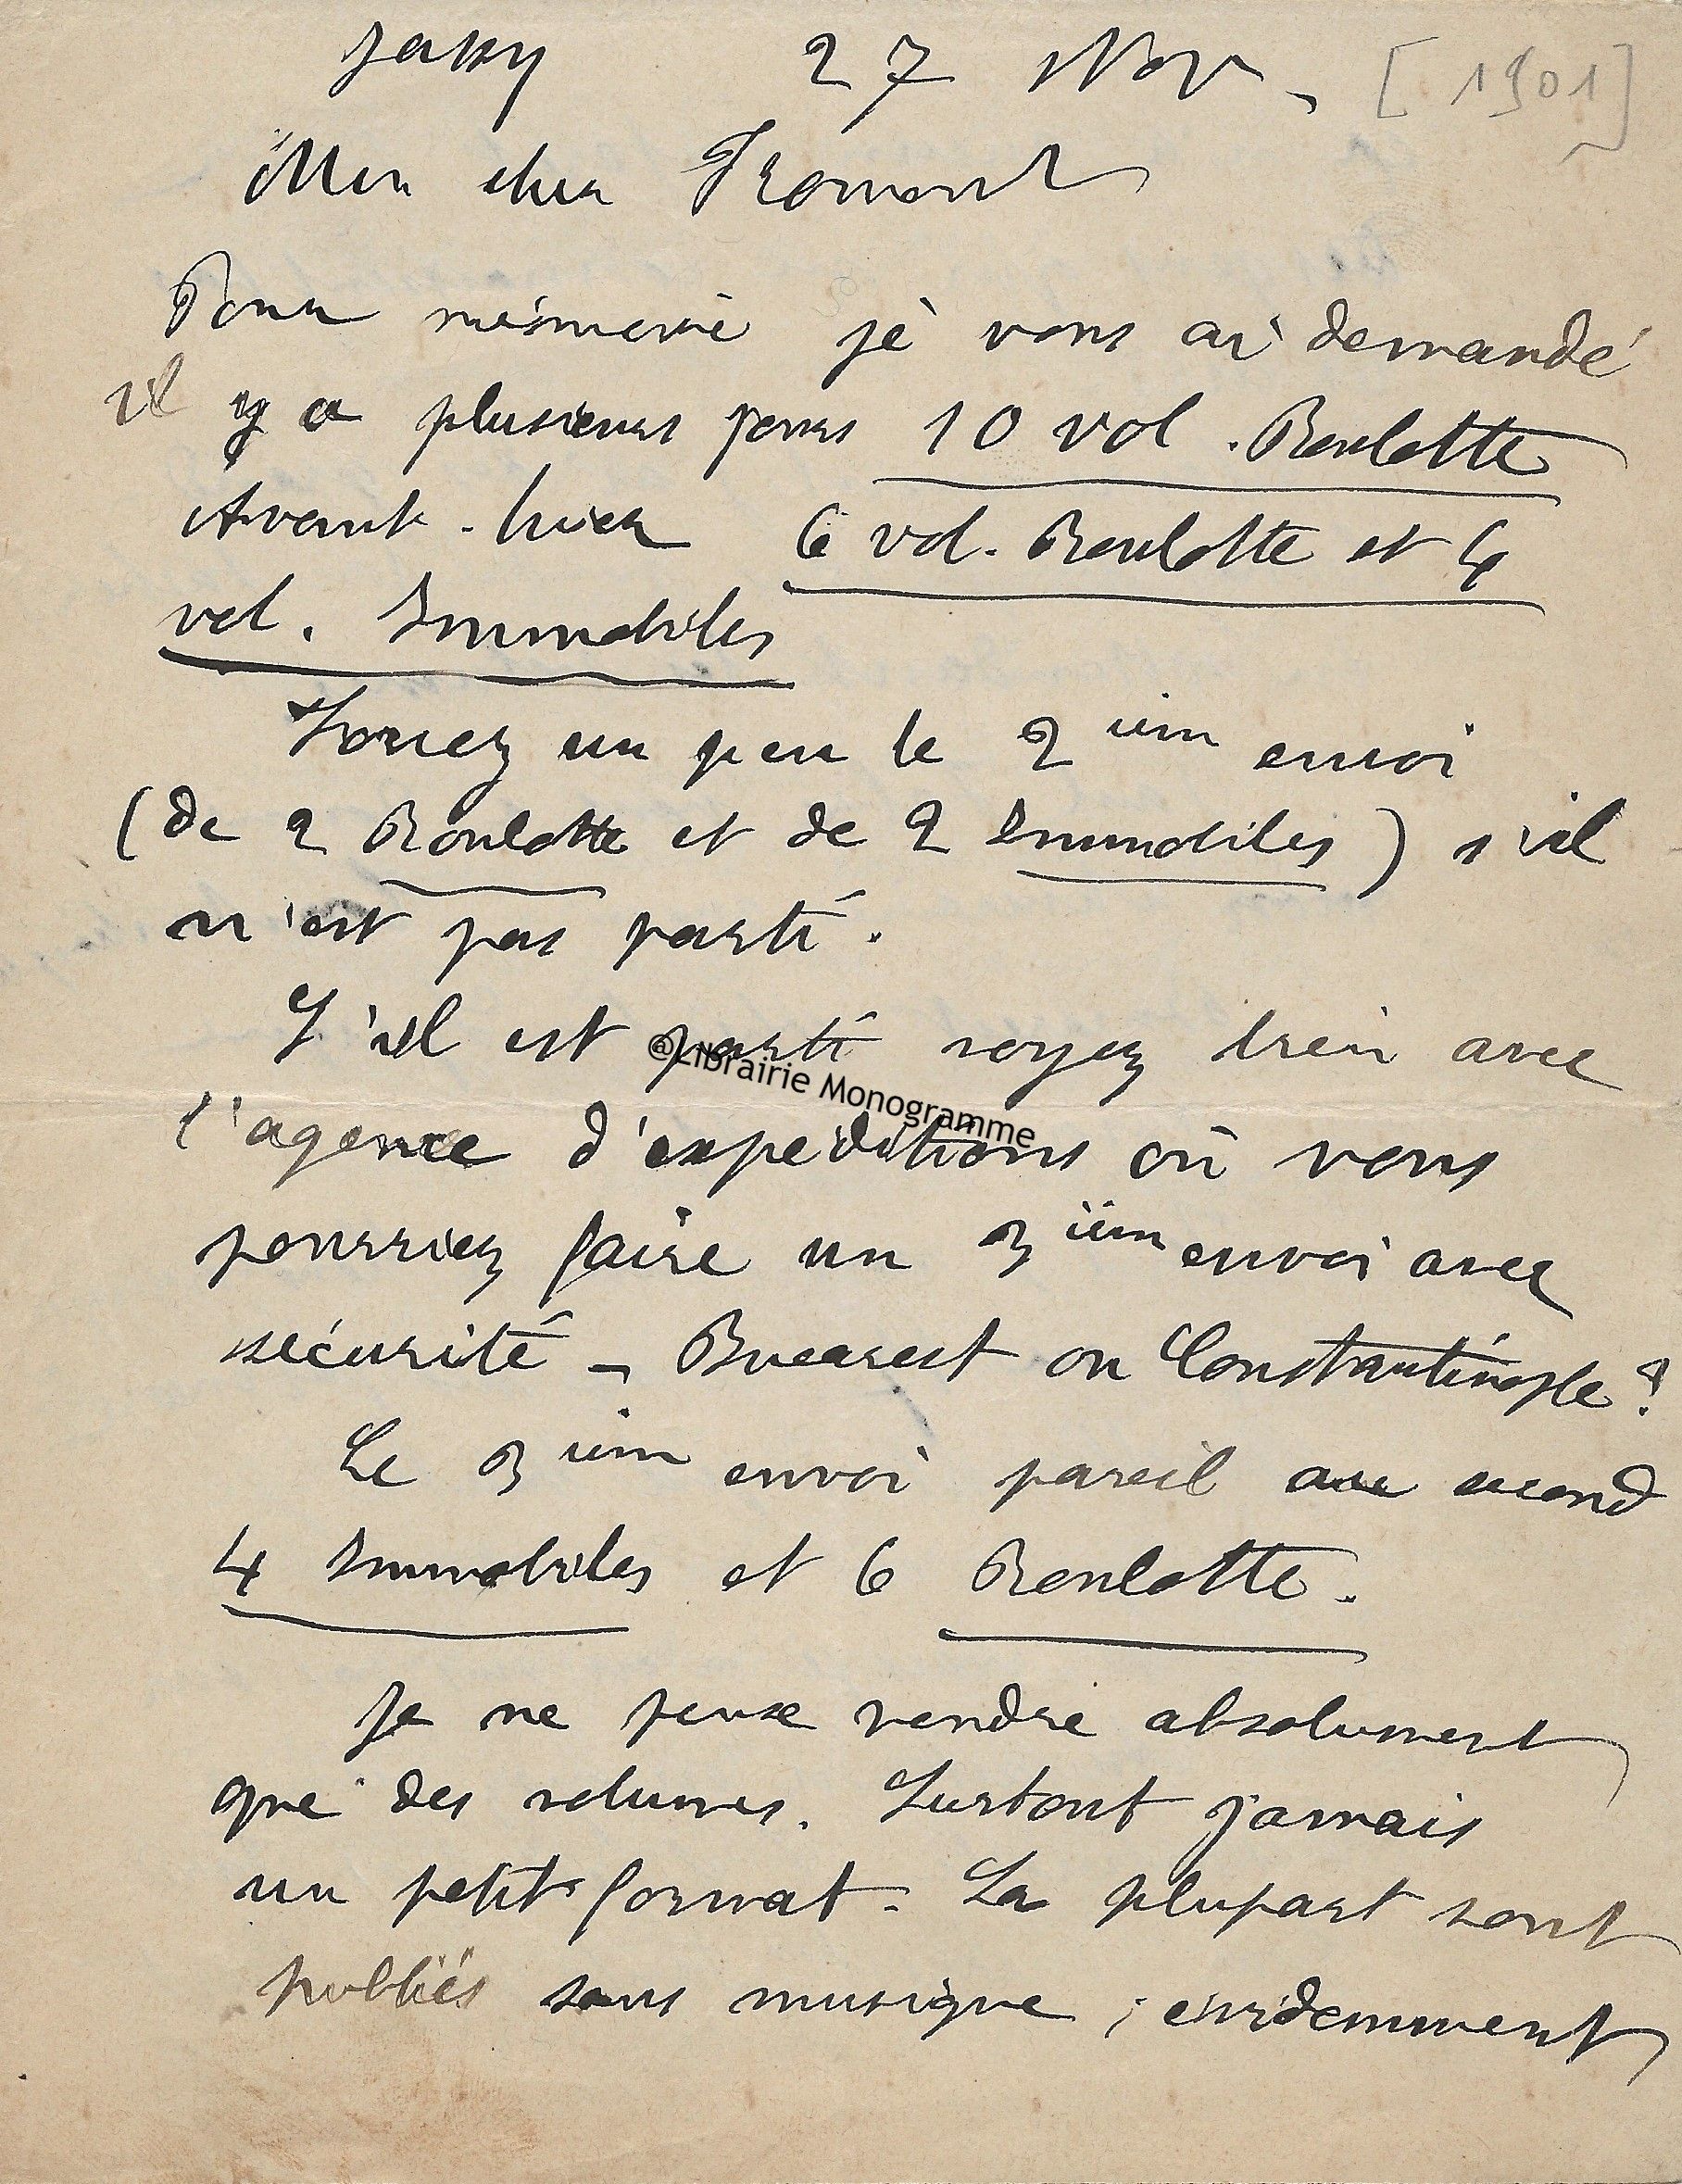 Jassy 27 Nov. [1901]
Mon cher Fromont
Pour mémoire je vous ai demandé
il y a plusieurs jours 10 vol. Roulotte
Avant-hier 6 vol. Roulotte et 4
vol. Immobiles
Forcez un peu le 2ièm envoi
(de 2 Roulotte et de 2 Immobiles) s'il
n'est pas parti.
S'il est parti voyez bien avec
l'agence d'expéditions où vous
pourriez faire un 3ièm envoi avec
sécurité - Bucarest ou Constantinople?
Le 3ièm envoi pareil au second
4 Immobiles et 6 Roulotte.
Je ne peux vendre absolument
que des volumes. Surtout jamais
un petit format. La plupart sont
publiés sans musique, évidemment
@Librairie Monogramme